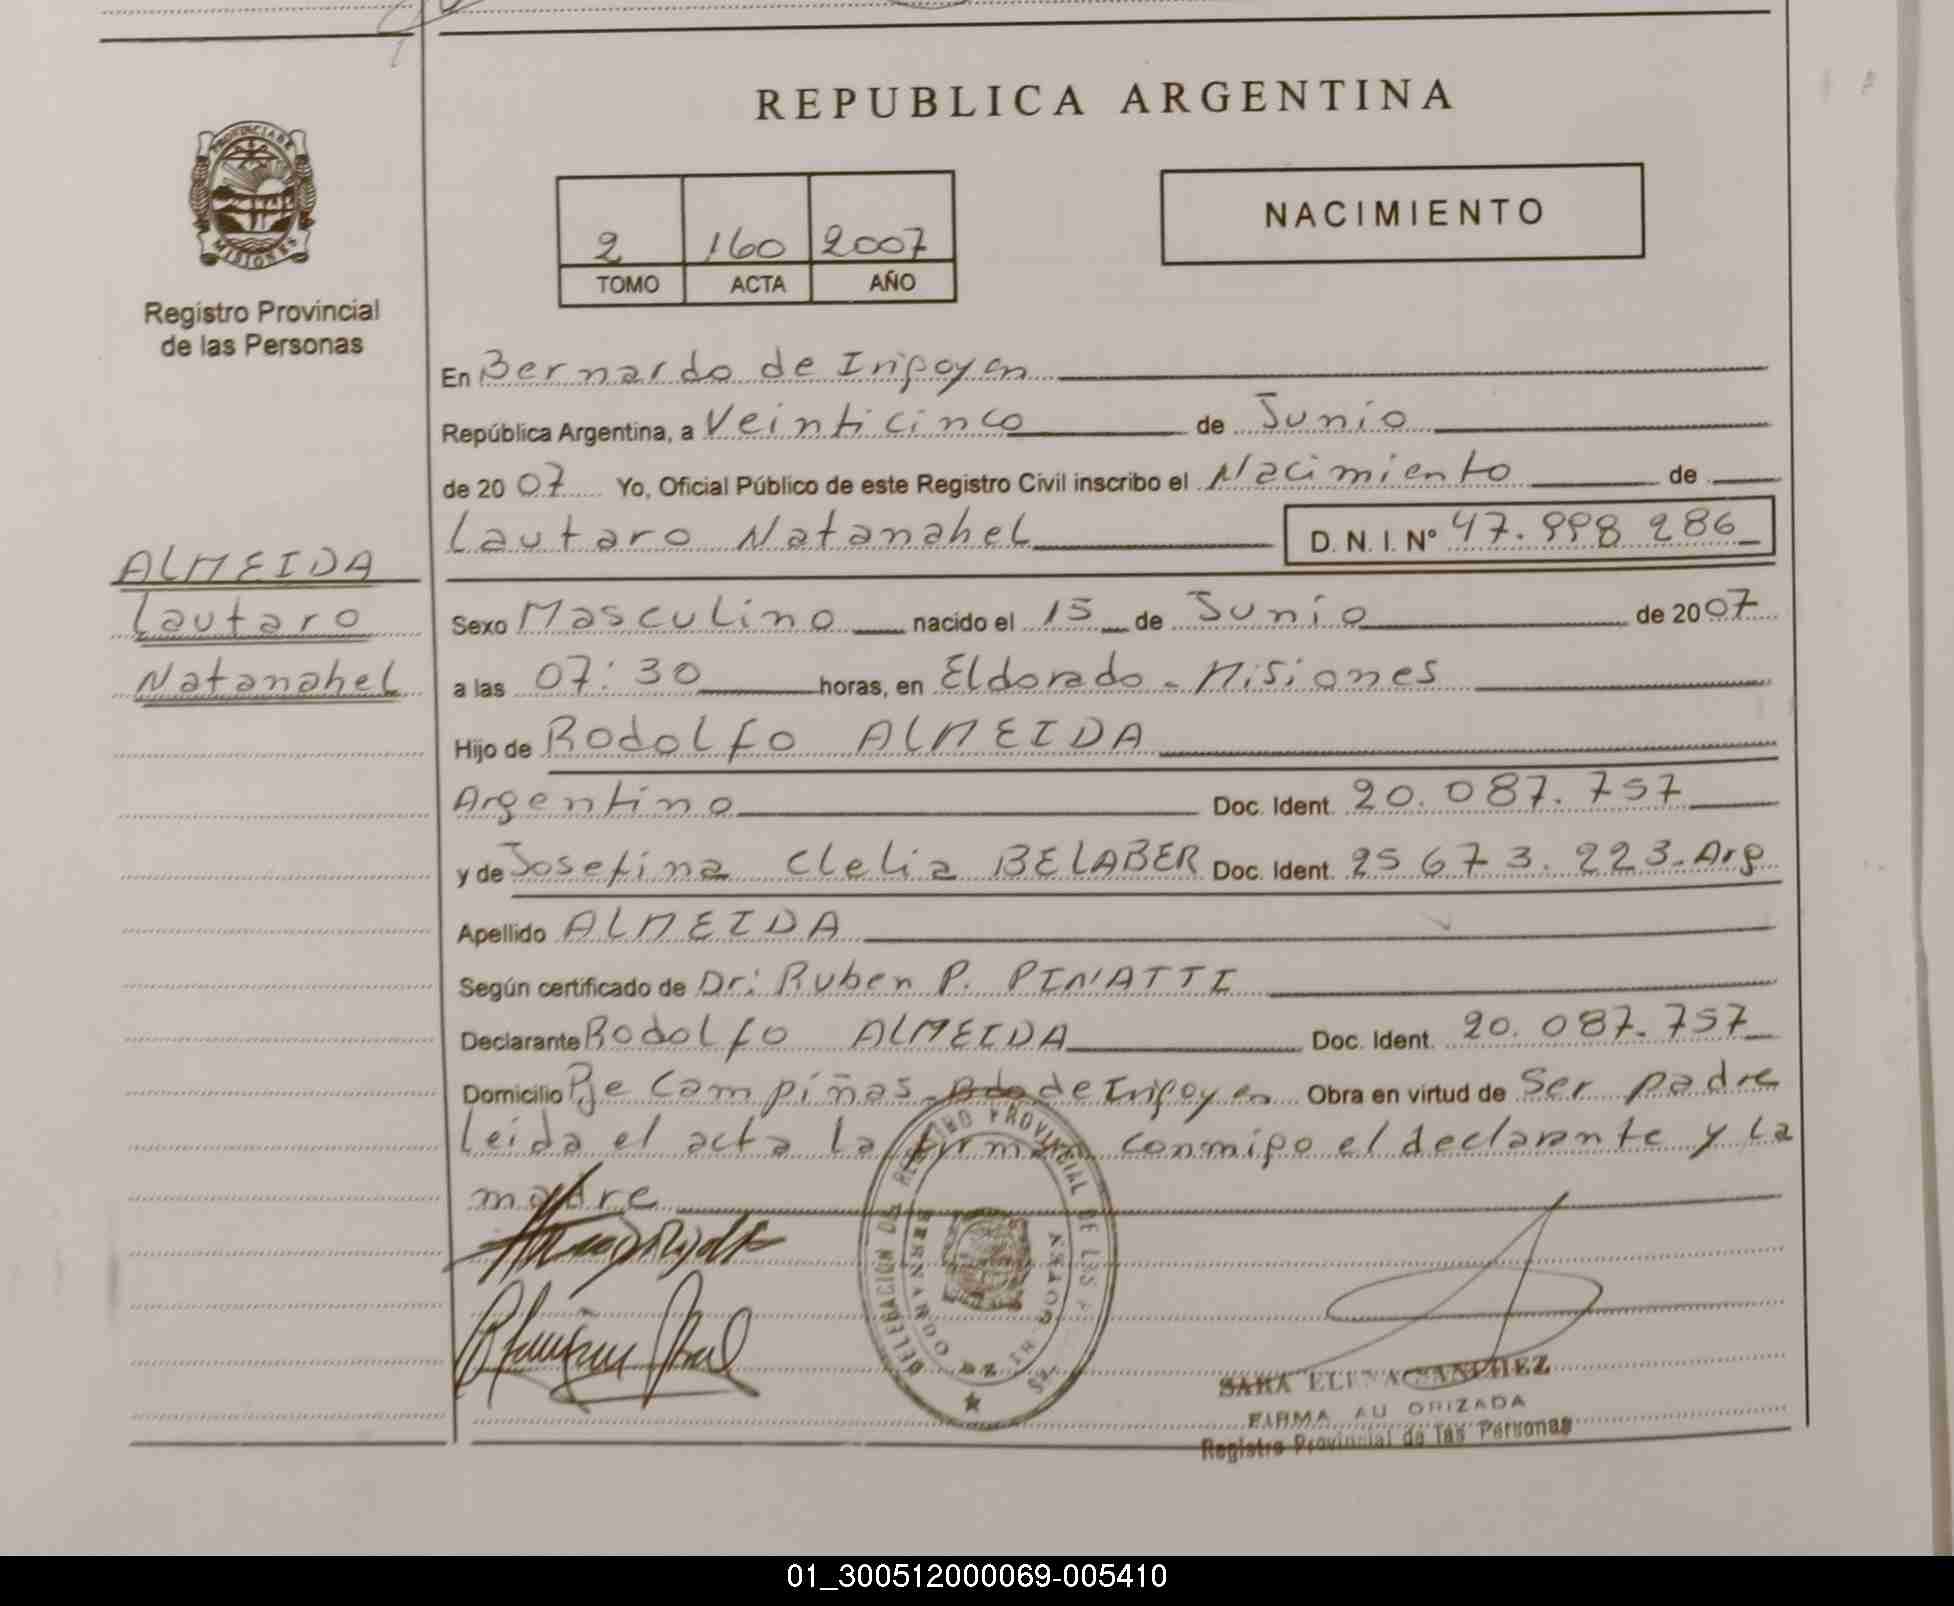 REPUBLICA ARGENTINA
PROVINCIA DE
MISIONES
Registro Provincial
de las Personas
2 160 2007
TOMO ACTA AÑO
NACIMIENTO
En Bernardo de Iripoyen
República Argentina, a Veinticinco de Junio
de 2007 Yo, Oficial Público de este Registro Civil inscribo el Nacimiento de
Lautaro Natanahel D. N. I. Nº 47.998 286
ALMEIDA
Lautaro
Natanahel
Sexo Masculino nacido el 15 de Junio de 2007
a las 07:30 horas, en Eldorado - Misiones
Hijo de Rodolfo ALMEIDA
Argentino Doc. Ident. 20.087.757
y de Josefina Clelia BELABER Doc. Ident. 25 673.223.Arg
Apellido ALMEIDA
Según certificado de Dr: Ruben P. PINATTI
Declarante Rodolfo ALMEIDA Doc. Ident. 20.087.757
Domicilio Pje Campiñas de Iripoyen Obra en virtud de Ser padre
leida el acta la firma conmipo el declarante y la
madre
DELEGACIÓN DEL REGISTRO PROVINCIAL DE LAS
BERNARDO DE
SARA ELENA SANCHEZ
FIRMA AUTORIZADA
Registro Provincial de las Personas
01_300512000069-005410